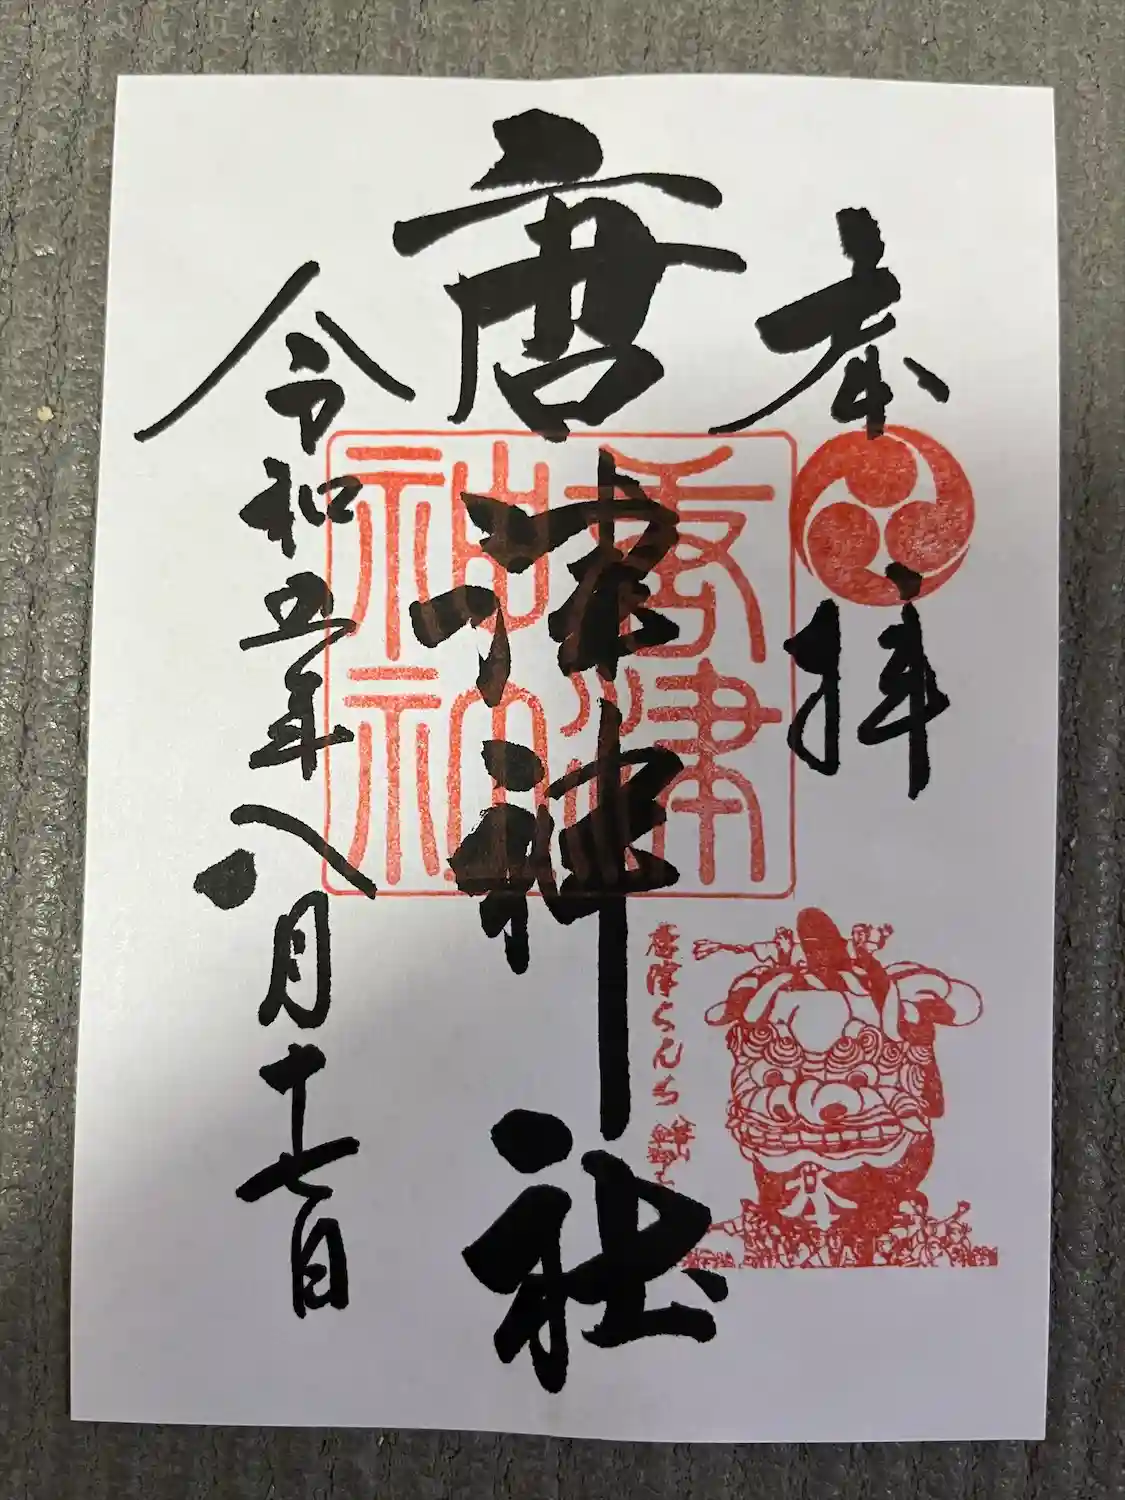 奉拝
唐津神社
唐津
神社
唐津くんち
令和五年八月十七日